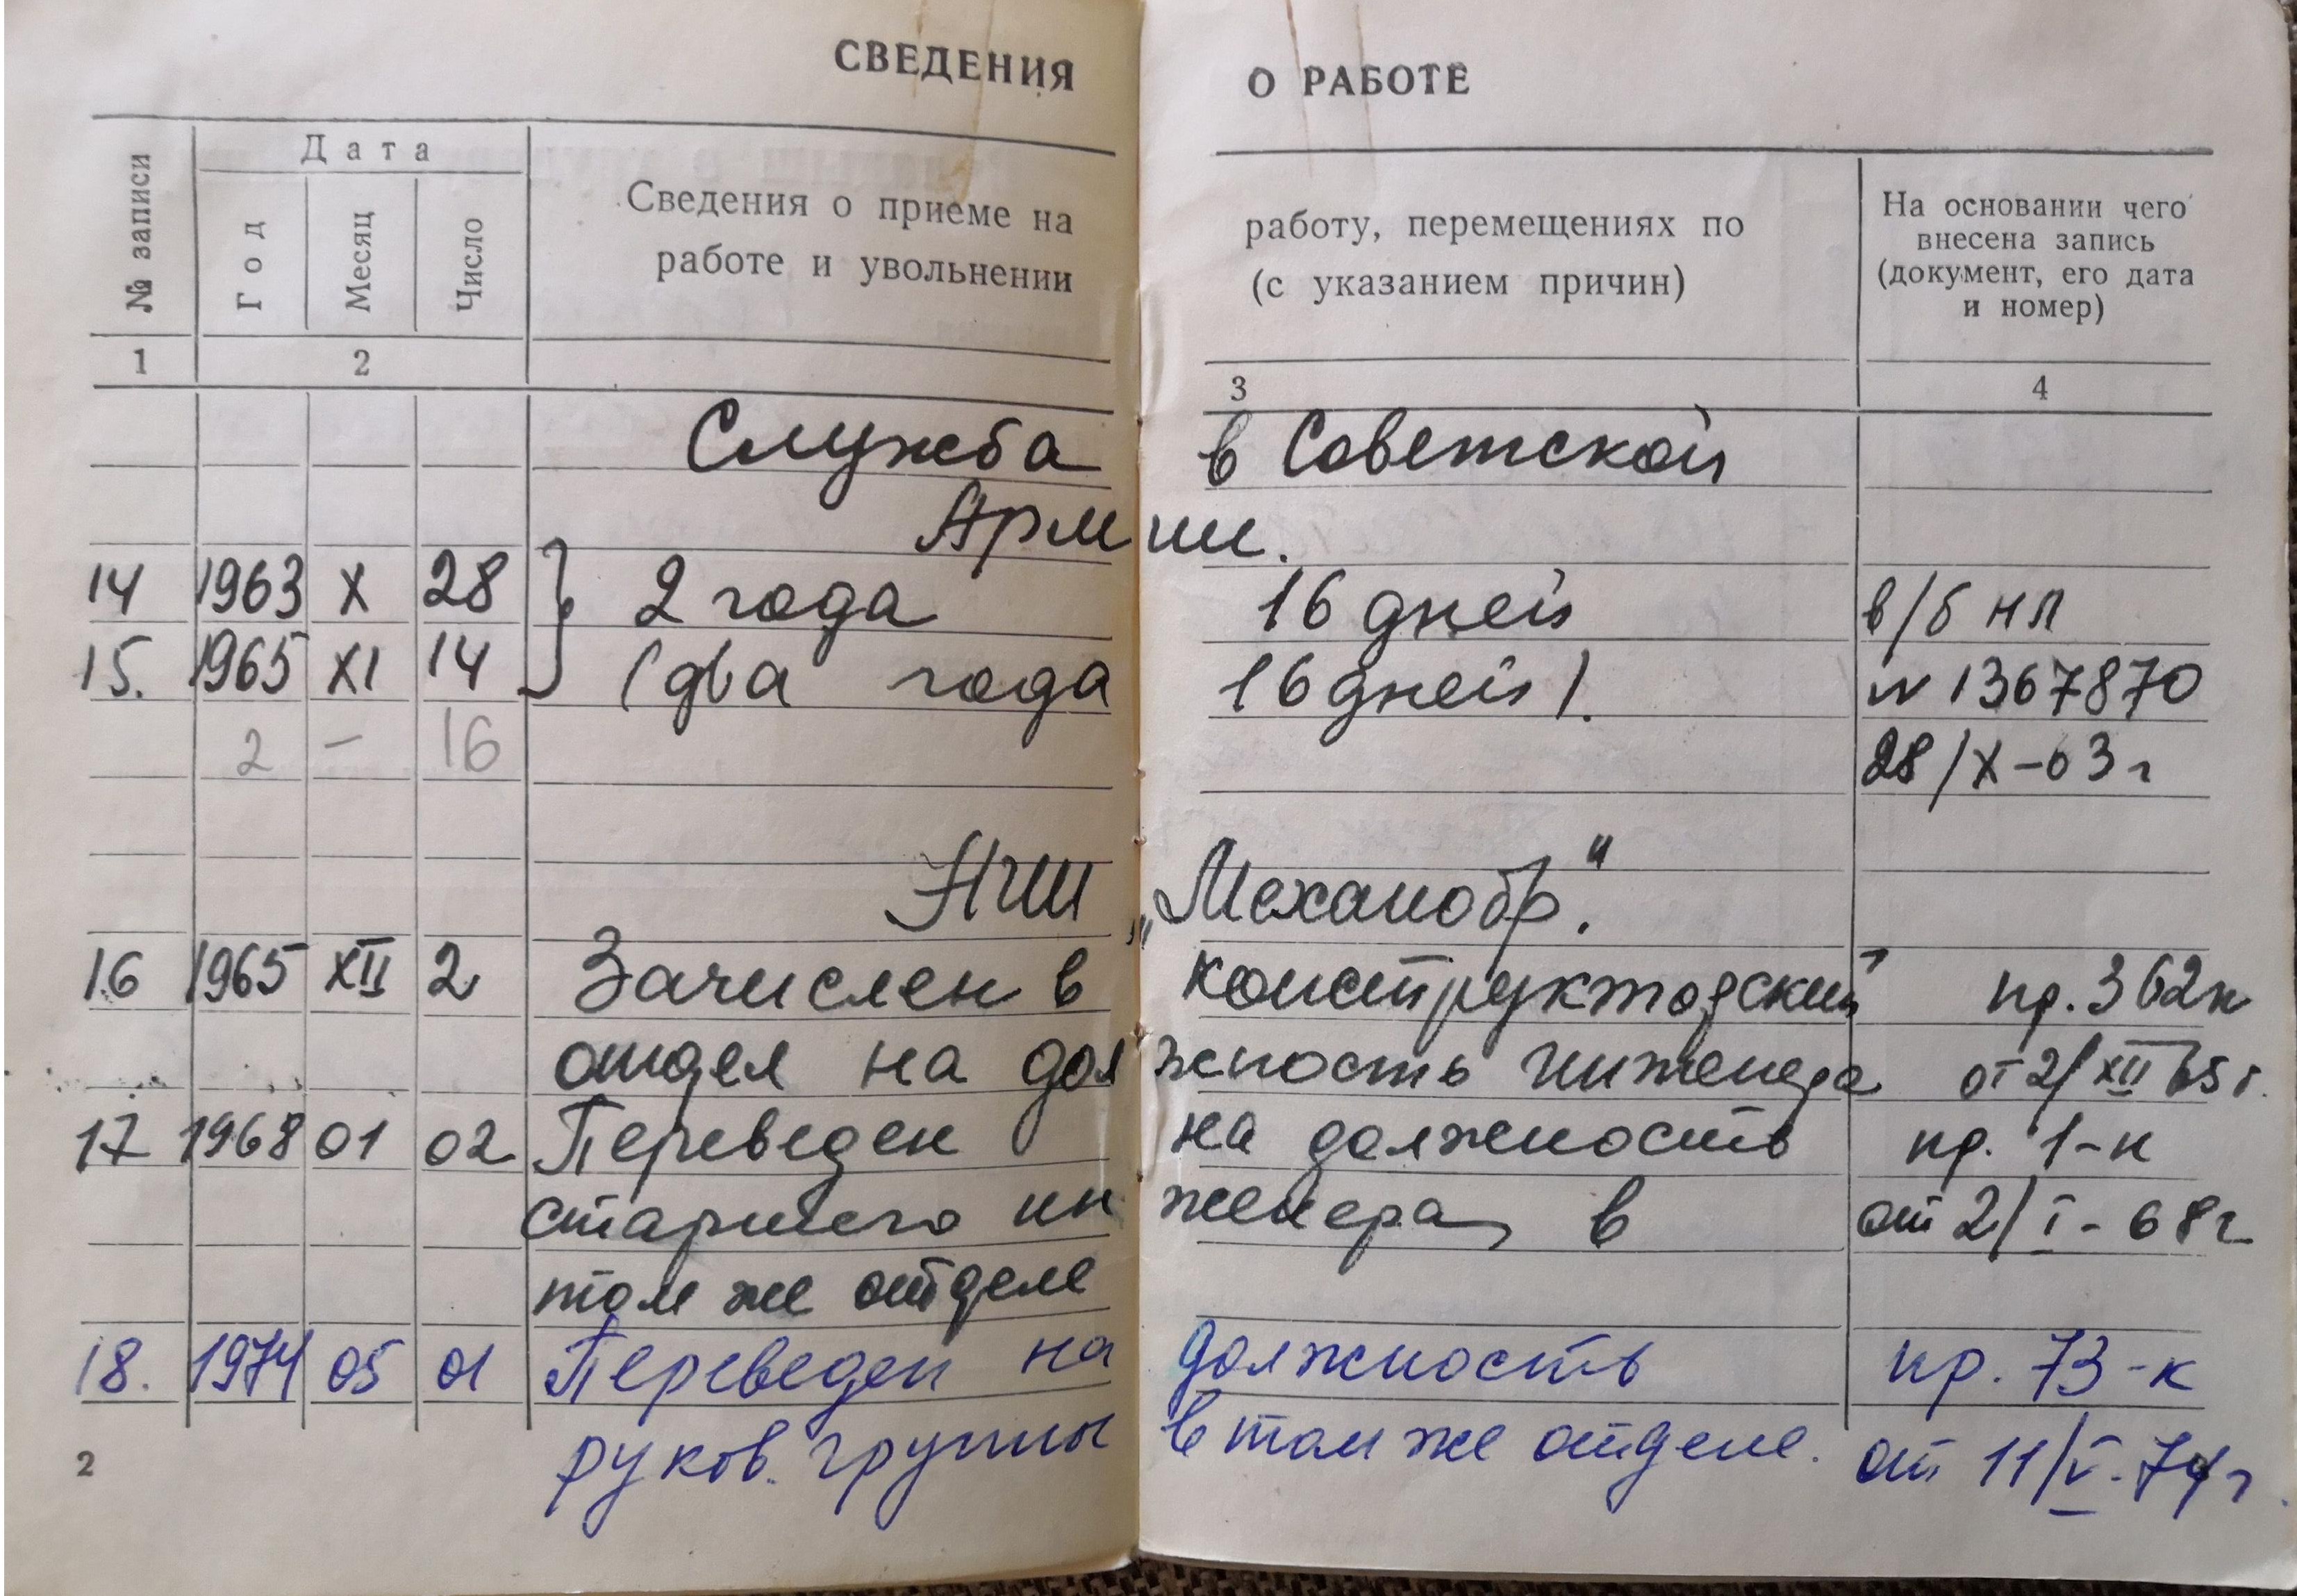 СВЕДЕНИЯ О РАБОТЕ
№ записи
Дата
Год
Месяц
Число
Сведения о приеме на работу, перемещениях по
работе и увольнении (с указанием причин)
На основании чего
внесена запись
(документ, его дата
и номер)
1 2 3 4
Служба в Советской
Армии.
14 1963 X 28 2 года 16 дней в/б НЛ
15. 1965 XI 14 (два года 16 дней). N 1367870
2 – 16 28/X-63г
НПИ „Механобр".
16 1965 XII 2 Зачислен в конструкторский пр. 362к
отдел на должность инженера от 2/XII 65г.
17 1968 01 02 Переведен на должность пр. 1-к
старшего инженера в от 2/I-68г
том же отделе
18. 1974 05 01 Переведен на должность пр. 73-к
руков. группы в том же отделе. от 11/V-74г.
2